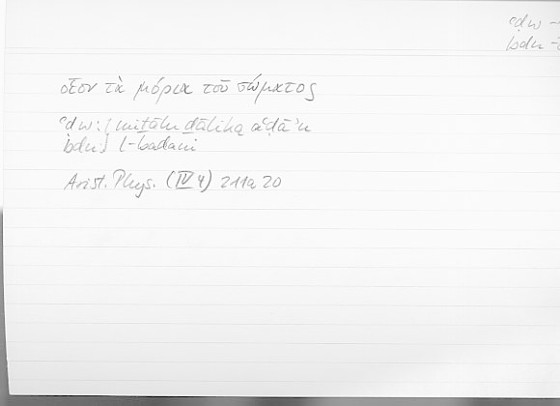 ʿḍw
bdn
οἷον τὰ μόρια τοῦ σώματος
ʿḍw: ( miṯālu ḏālika aʿḍāʾu
bdn: ) l-badani
Arist. Phys. (IV 4) 211a 20